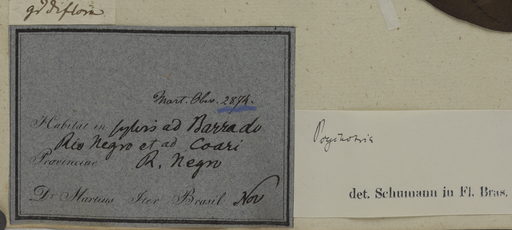 Mart. Obs. 2874.
Habitat in sylvis ad Barra do
Rio Negro et ad Coari
Provinciae R. Negro
Dr. Martius Iter Brasil Nov
Psychotria
det. Schumann in Fl. Bras.